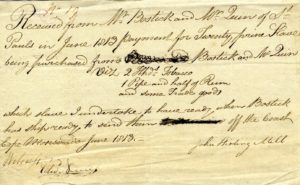 Received from Mr. Bostick and Mr. Quin of St.
Pauls in June 1813 payment for Twenty prime Slaves
being purchased from Bostick and Mr. Quin
Viz 2 Hhds. Tobacco
1 Pipe and half of Rum
and some Trade goods
which slaves I undertake to have ready, when Bostick
has ship ready to send them off the Coast
Cape Mesurado June 1813.
John Sterling Mill
Witness